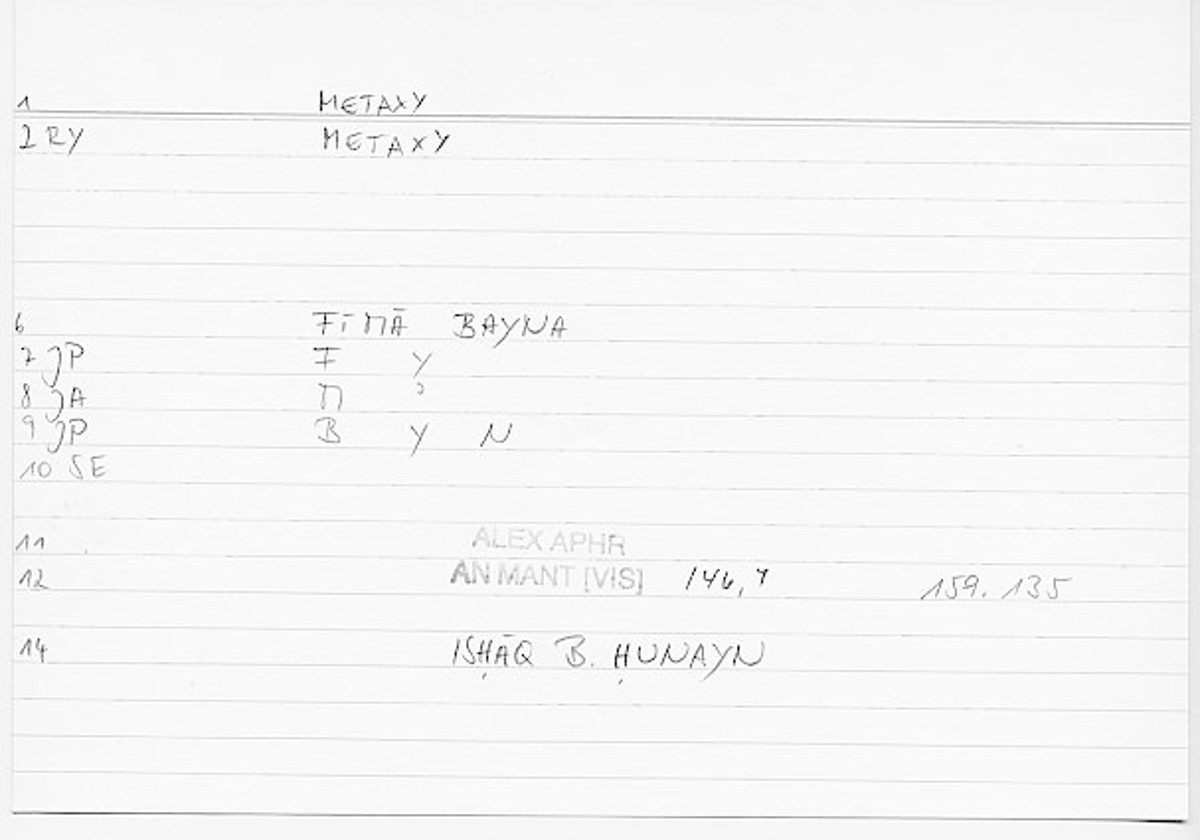 1 METAXY
2 RY METAXY
6 FĪMĀ BAYNA
7 JP F Y
8 JA M ʾ
9 JP B Y N
10 SE
11 ALEX APHR
12 AN MANT [VIS] 146,4 159.135
14 ISḤĀQ B. ḤUNAYN